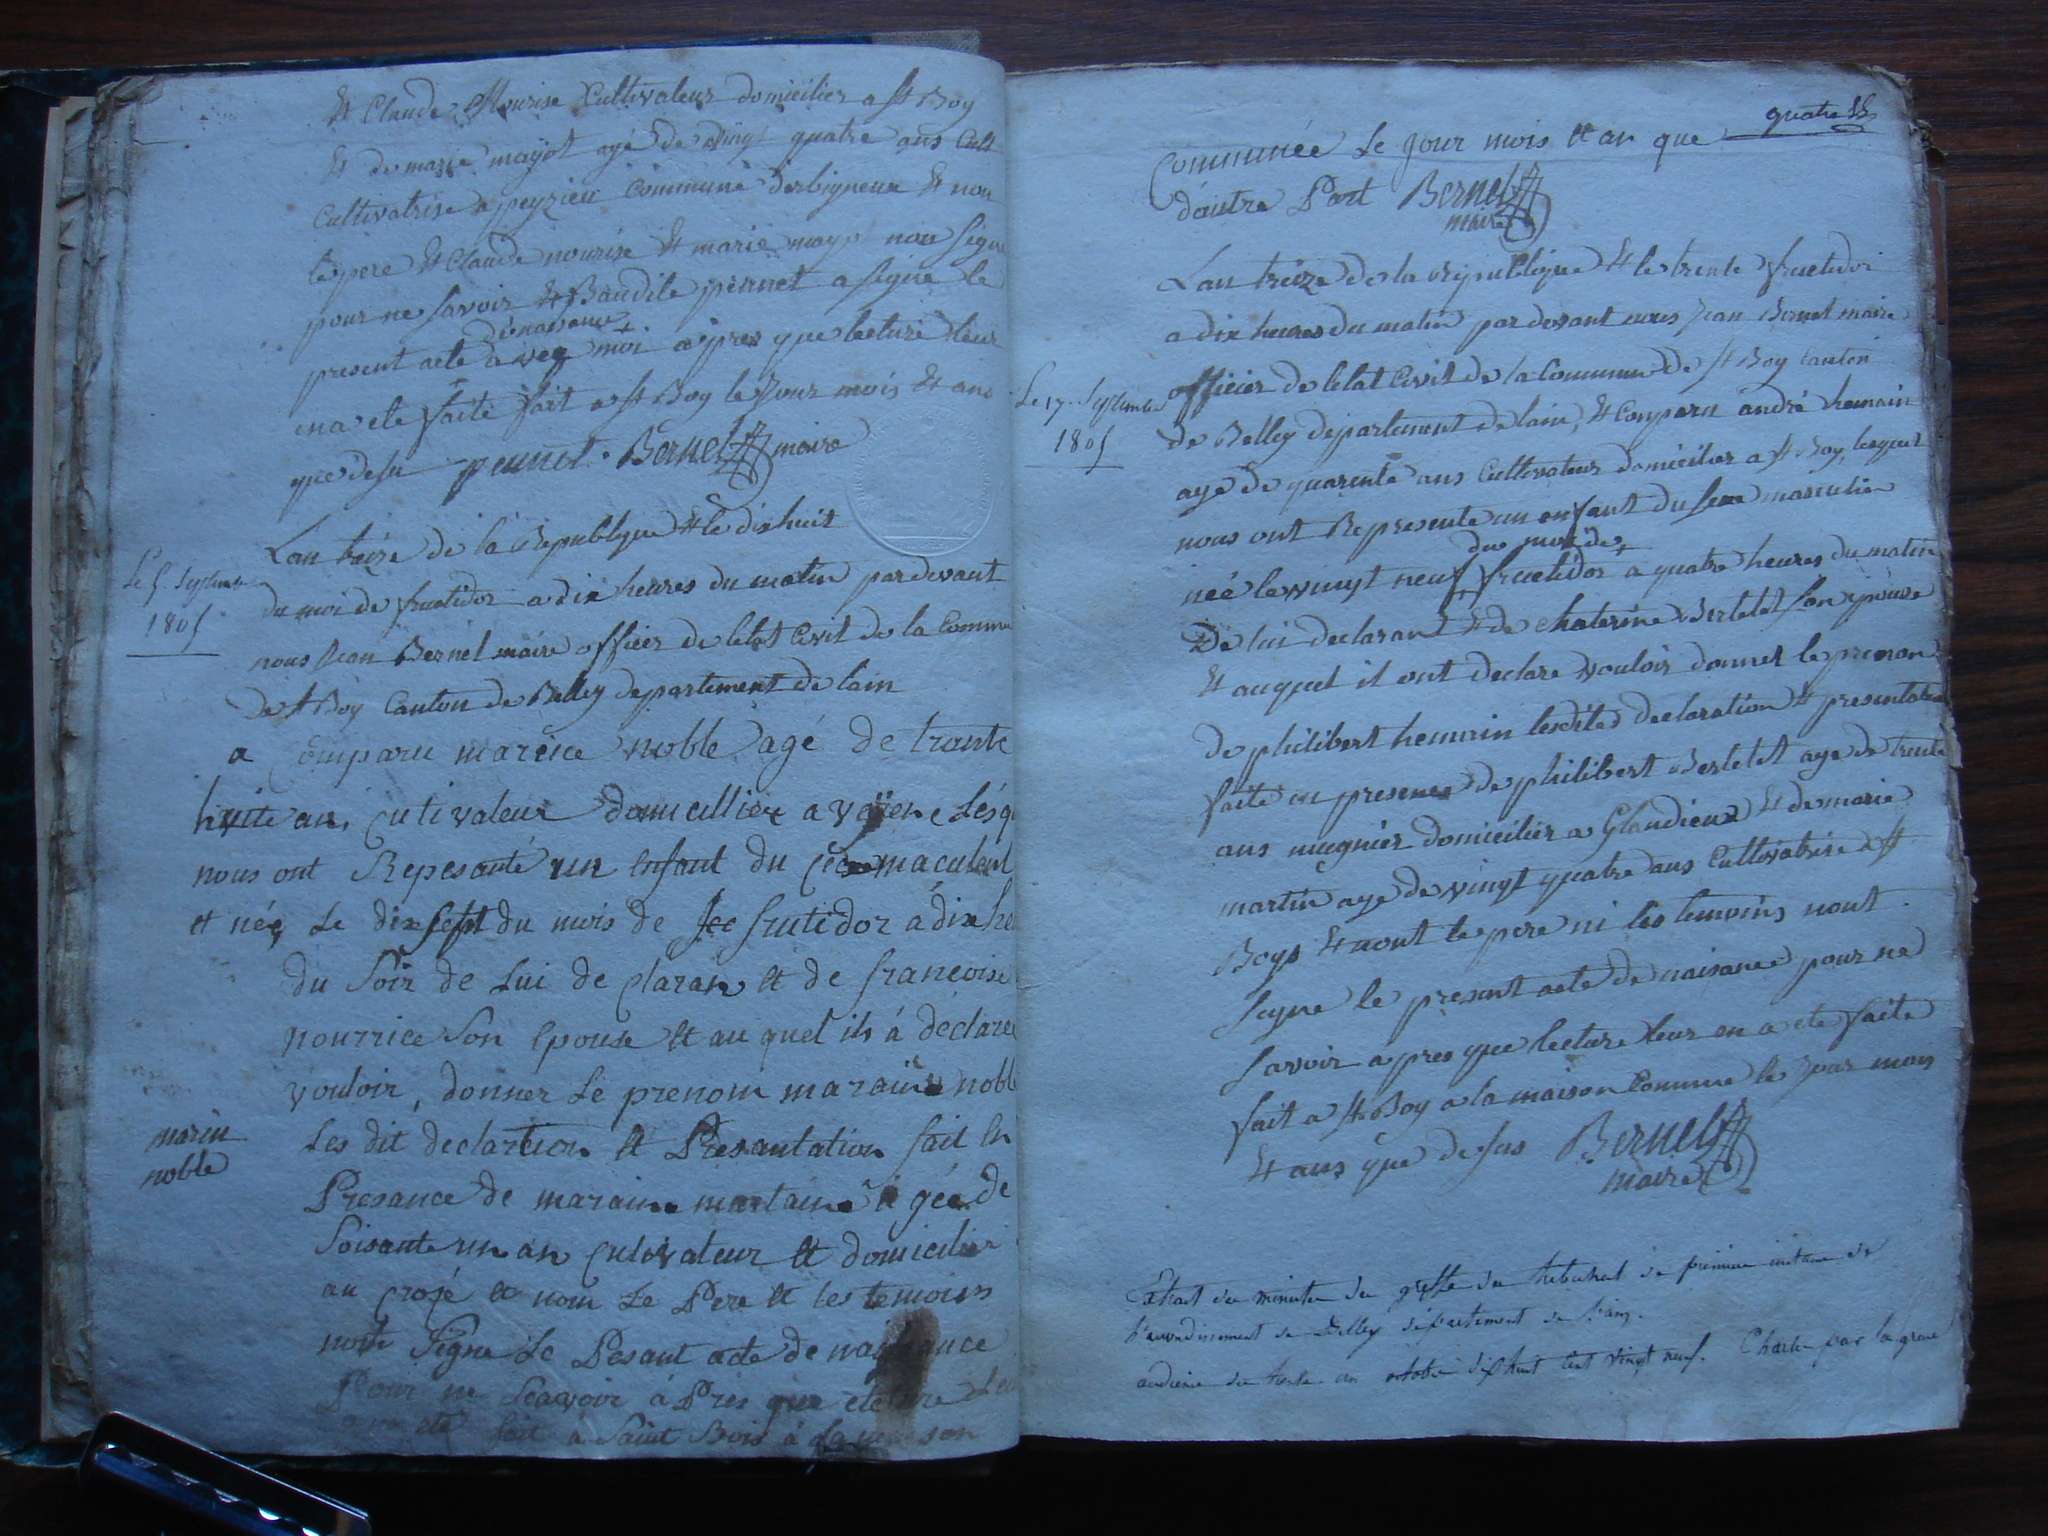 et Claude Nourise Cultivateur domicilier a st Boy
et de marie mayot agé de vingt quatre ans Cult
Cultivatrise a peyzieu commune darbignieu et non
le pere et Claude nourise et marie mayot non signe
pour ne savoir et Baudile pernet a signe le
present acte de naisance avec moi apres que lecture leur
en a ete faite fait a st Boy le Jour mois et ans
que desu pernet. Bernet maire
Le 5 septembre
1805
Lan treize de la Republique et le dix huit
du moi de fructidor a dix heures du matin par devant
nous Jean Bernet maire officier de letat Civit de la Commu
de st Boy Canton de Belley departement de lain
a Comparu mareice noble agé de trante
huite an, Cutivateur domicillier a vöïene Lésq
nous ont Repesanté un Enfant du maculent
et née Le dix sept du mois de frutidor a dix he
du soir de Lui de claran et de francoise
nourrice son Epouse et au quel ils á déclaree
vouloir, donner Le prenom maraine noble
marin
noble
Les dit declartion et Presantation fait En
Presance de maraine martaine a gée de
Soisante un an Cutivateur et domicilier
au crojé et nom Le Pere et les temoins
note Signe Le Pesant acte de naissance
Pour ne Seavoir á Près que lecture Leu
ete fait à Saint Bois à La meson
quatre
Commúnée Le jour mois et an que
dautre Part Bernet
maire
Lan treize de la republique et le trente fructidor
a dix heures du matin par devant nous Jean Bernet maire
Le 17 septembre
1805
officier de letat Civit de la Commune de st Boy Canton
de Belley departement de lain, et Comparu andré hemin
agé de quarente ans Cultivateur domicilier a st Boy, lesquel
nous ont Represente un enfant du sexe masculin
née le vingt neuf du moi de fructidor a quatre heures du matin
De lui declarant et de chaterine Bertelet son epouse
et auquel il ont declare vouloir donner le prenon
de philibert hemin lesdites declaration et presentation
faite en presence de philibert Bertelet age de trente
ans mugnier domicilier a Glandieux et de marie
martin age de vingt quatre dans Cultivatrise a st
Boys et nont le pere ni les temoins nont
Signe le present acte de naisance pour ne
savoir apres que lecture leur en a ete faite
fait a st Boy a la maison Commune le Jour mois
et ans que desus Bernet
maire
Extrait des minutes du greffe du tribunal de première instance de
l'arrondissement de Belley département de l'ain.
audience du trente un octobre dix huit cent vingt neuf.